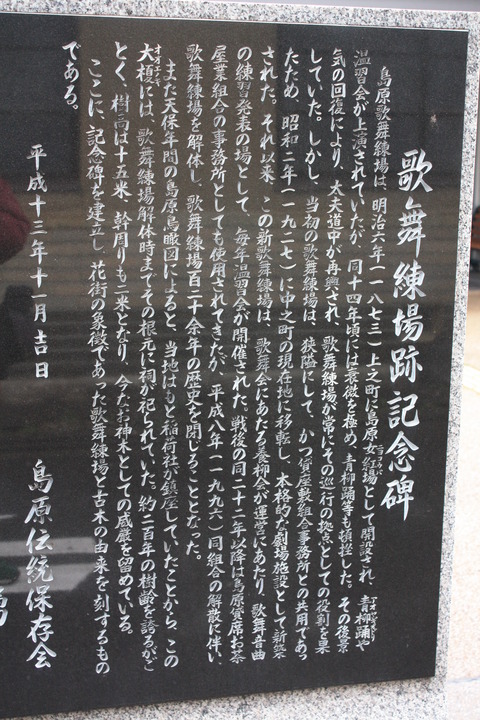 歌舞練場跡記念碑
島原歌舞練場は、明治六年(一八七三)上之町に島原女紅場として開設され、青柳踊や
温習会が上演されていたが、同十四年頃には衰微を極め、青柳踊等も頓挫した。その後景
気の回復により、太夫道中が再興され、歌舞練場が常にその巡行の拠点としての役割を果
していた。しかし、当初の歌舞練場は、狭隘にして、かつ貸座敷組合事務所との共用であっ
たため、昭和二年(一九二七)に中之町の現在地に移転し、本格的な劇場施設として新築
された。それ以来、この新歌舞練場は、歌舞会にあたる養柳会が運営にあたり、歌舞音曲
の練習発表の場として、毎年温習会が開催された。戦後の同二十二年以降は島原貸席お茶
屋業組合の事務所としても使用されてきたが、平成八年(一九九六)同組合の解散に伴い、
歌舞練場を解体し、歌舞練場百二十余年の歴史を閉じることとなった。
また天保年間の島原鳥瞰図によると、当地はもと稲荷社が鎮座していたことから、この
大榎には、歌舞練場解体時までその根元に祠が祀られていた。約二百年の樹齢を誇るがご
とく、樹高は十五米、幹周りも二米となり、今なお神木としての威厳を留めている。
ここに、記念碑を建立し、花街の象徴であった歌舞練場と古木の由来を刻するもの
である。
平成十三年十一月吉日
島原伝統保存会